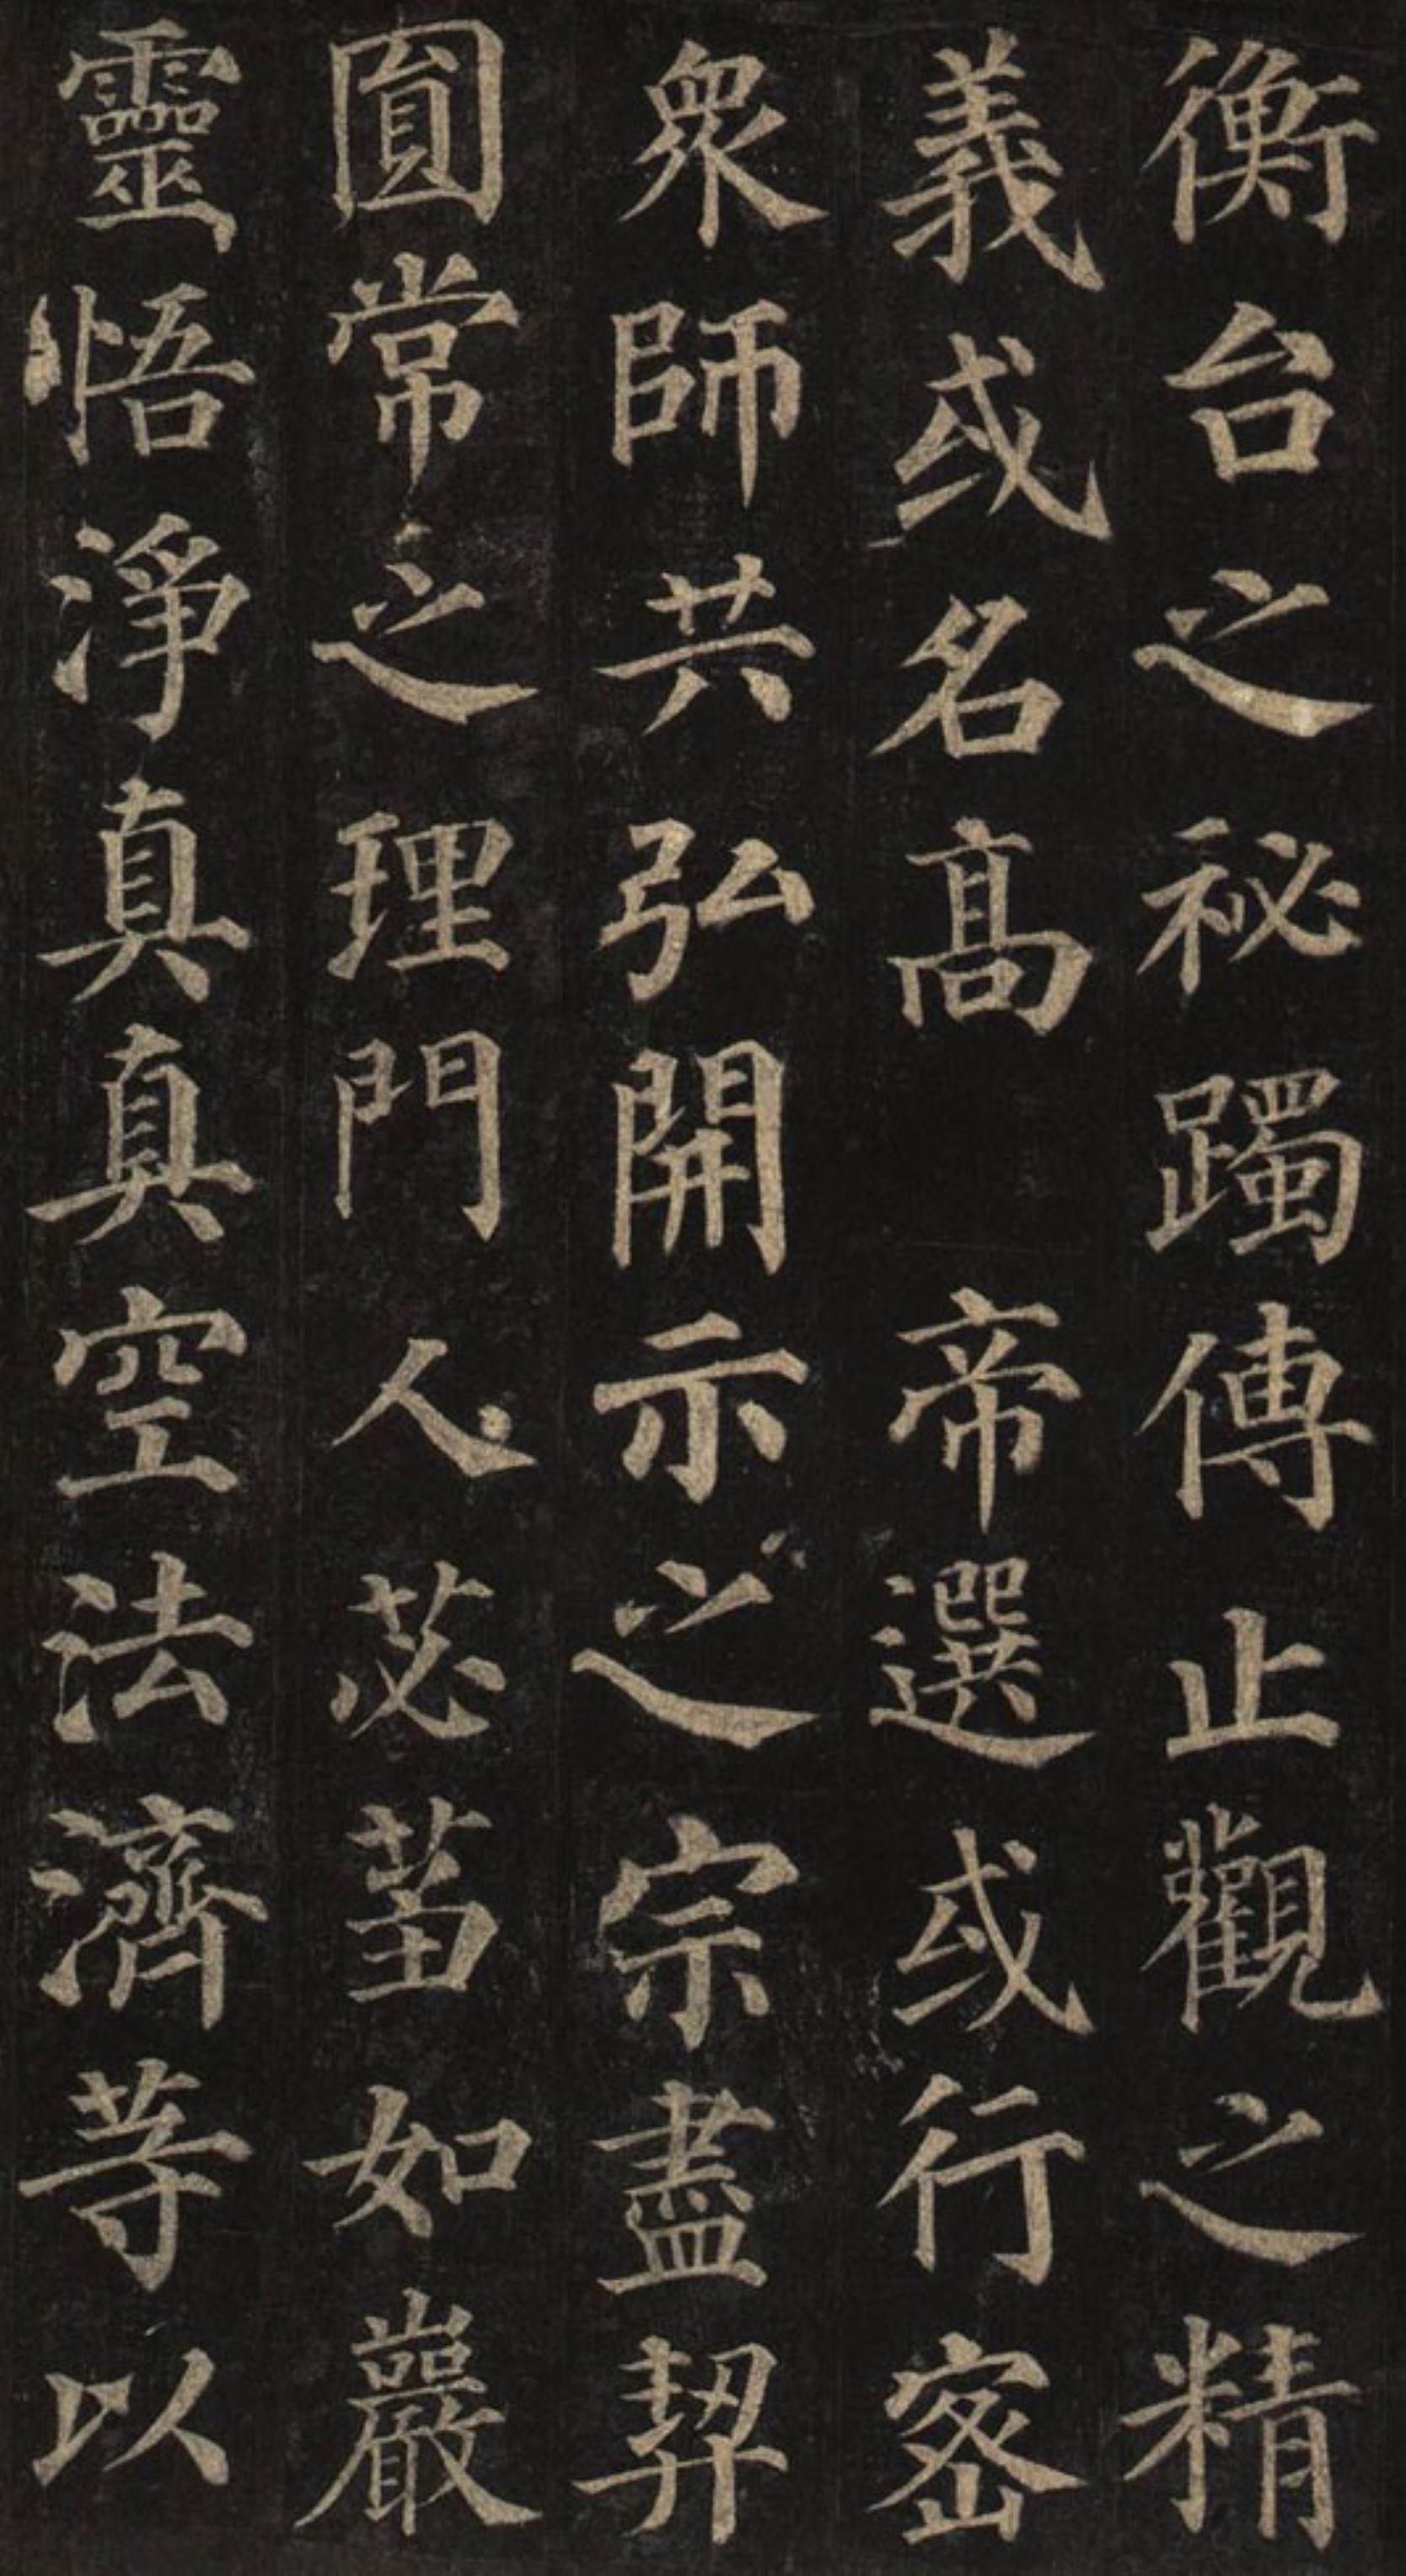 衡台之秘躅傳止觀之精
義或名高帝選或行密
眾師共弘開示之宗盡契
圓常之理門人苾蒭如巖
靈悟淨真真空法濟等以